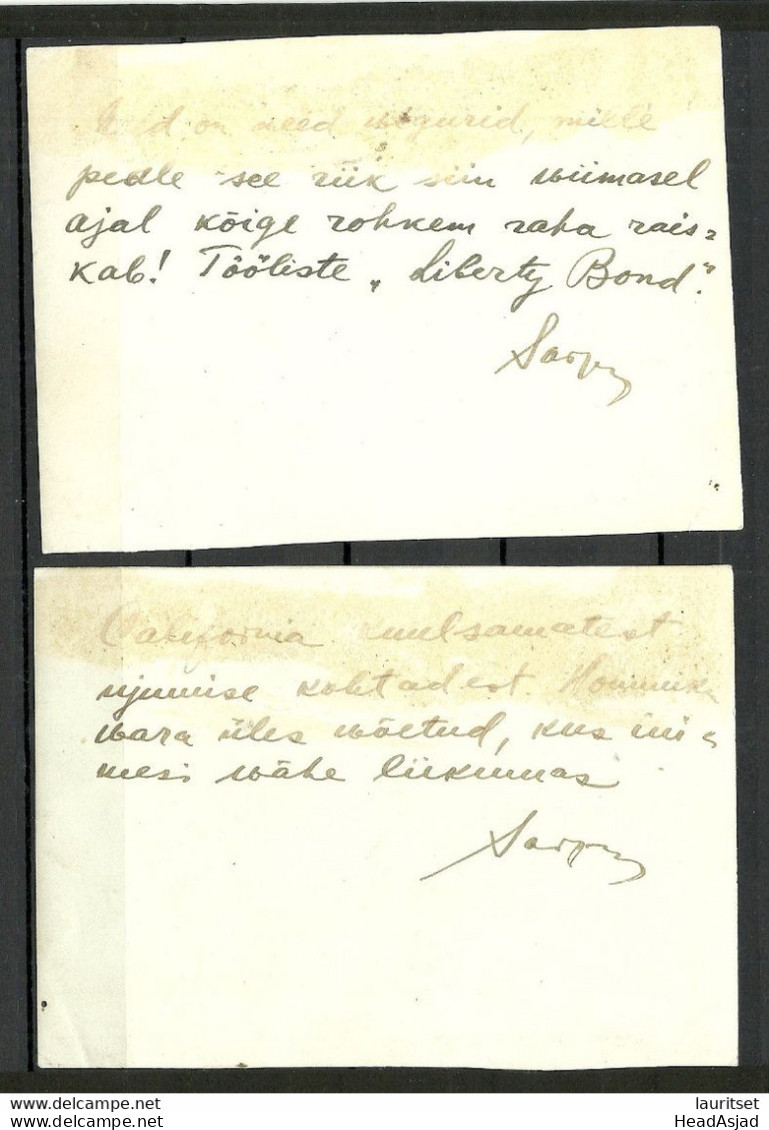 on need wigurid, mille
peale see riik siin wiimasel
ajal kõige rohkem raha rais=
kab! Tööliste „Liberty Bond".
California kuulsamatest
ujumise kohtadest. Hommiku
wara üles wõetud, kus ini=
mesi wähe liikumas
https://www.delcampe.net
https://www.delcampe.net
lauritset
HeadAsjad